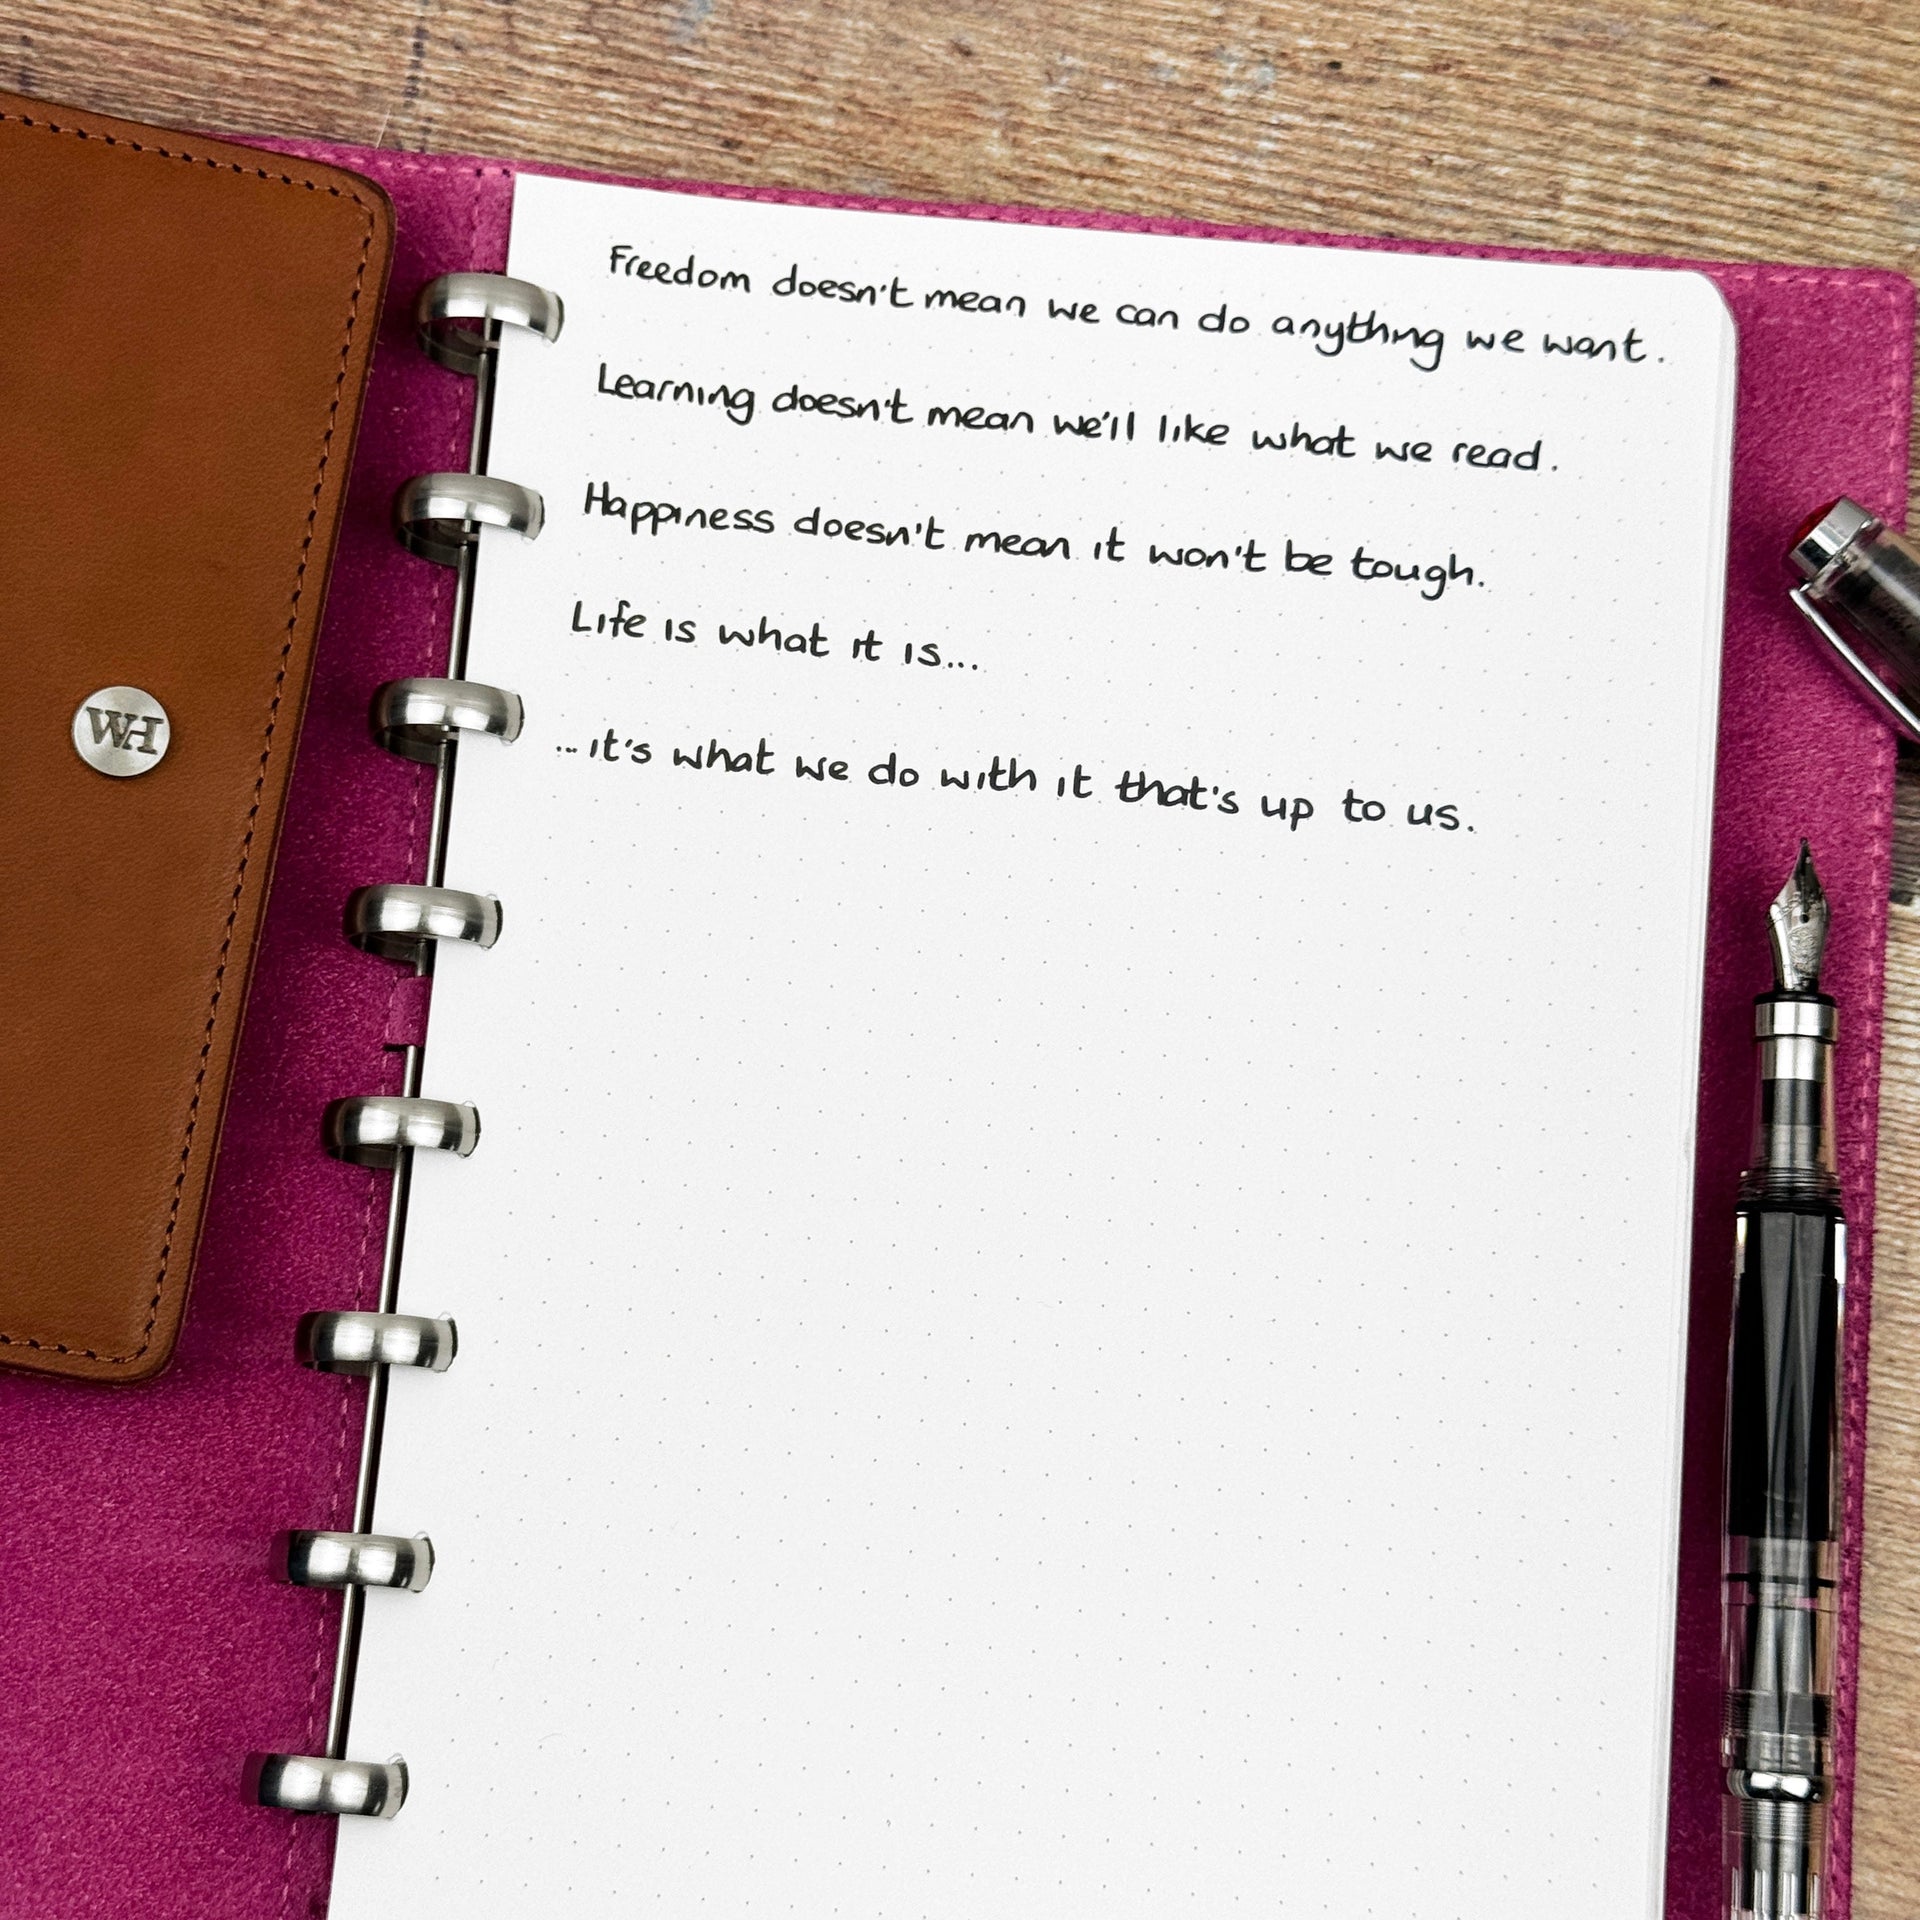 Freedom doesn't mean we can do anything we want.
Learning doesn't mean we'll like what we read.
Happiness doesn't mean it won't be tough.
Life is what it is...
...it's what we do with it that's up to us.
WH